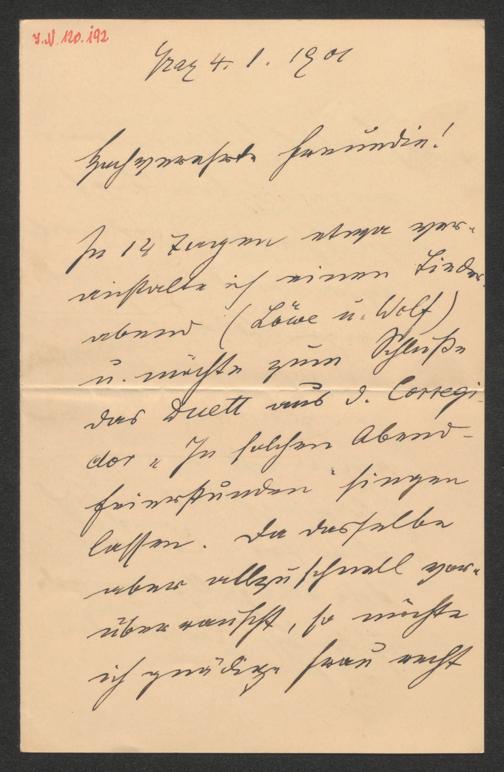 I.N. 120.192
Graz 4. 1. 1901
Hochverehrte Freundin!
In 14 Tagen etwa ver-
anstalte ich einen Lieder-
abend (Löwe u. Wolf)
u. möchte zum Schluße
das Duett aus d. Corregi-
dor „In solchen Abend-
feierstunden" singen
lassen. Da dasselbe
aber allzuschnell vor-
überrauscht, so möchte
ich gnädige Frau recht